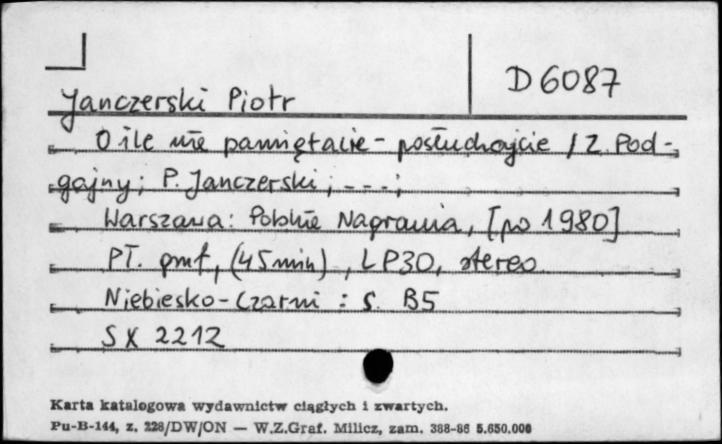 D 6087
Janczerski Piotr
O ile nie pamiętacie - posłuchajcie / Z. Pod-
gajny ; P. Janczerski ; - - - ;
Warszawa : Polskie Nagrania, [po 1980]
PŁ. gmf., (45 min)., LP30, stereo
Niebiesko-Czarni : s. B5
SX 2212
Karta katalogowa wydawnictw ciągłych i zwartych.
Pu-B-144, z. 228/DW/ON — W.Z.Graf. Milicz, zam. 388-86 5.650.000